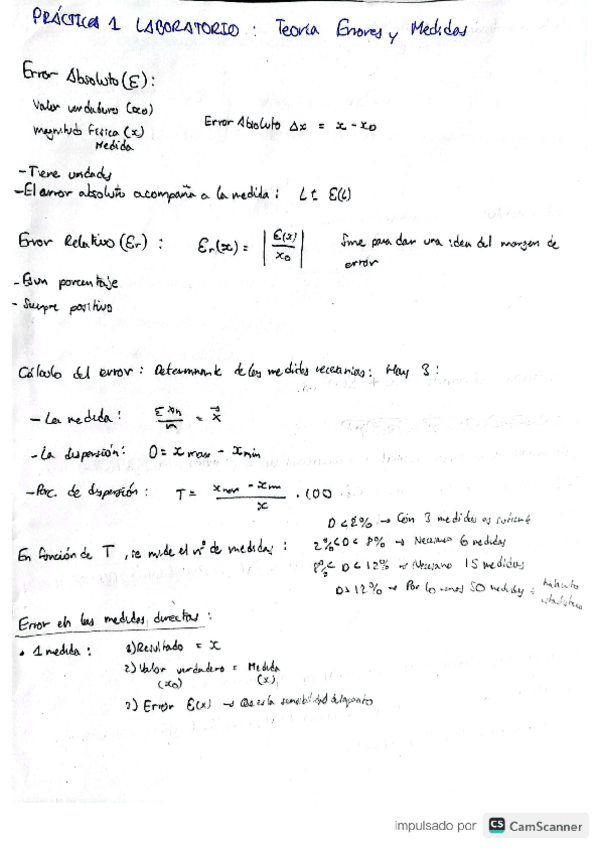 PRÁCTICA 1 LABORATORIO : Teoría Errores y Medidas
Error Absoluto (Ɛ) :
Valor verdadero (x0)
magnitud Física (x)
Medida
Error Absoluto Δx = x - x0
- Tiene unidades
- El error absoluto acompaña a la medida : L ± Ɛ(L)
Error Relativo (Ɛr) : Ɛr(x) = | Ɛ(x) / x0 | Sirve para dar una idea del margen de
error
- Es un porcentaje
- Siempre positivo
Cálculo del error : de las medidas necesarias : Hay 3 :
- La medida : Σ xn / n = x̄
- La dispersión : D = x max - x min
- Porc. de dispersión : T = x max - x min / x . 100
En función de T , se mide el nº de medidas :
D < 2% → Con 3 medidas es suficiente
2% < D < 8% → Necesario 6 medidas
8% < D < 12% → Necesario 15 medidas
D > 12% → Por lo menos 50 medidas + tratamiento
estadístico
Error en las medidas directas :
• 1 medida : 1) Resultado = x
2) Valor verdadero = Medida
(x0) (x)
3) Error Ɛ(x) → la sensibilidad del aparato
impulsado por CS CamScanner